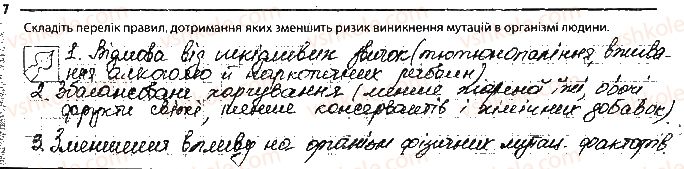 7
Складіть перелік правил, дотримання яких зменшить ризик виникнення мутацій в організмі людини.
1. Відмова від шкідливих звичок (тютюнопаління, вжива-
ння алкоголю й наркотичних речовин)
2. Збалансоване харчування (менше жирної їжі, овочі
фрукти свіжі, менше консервантів і хімічних добавок)
3. Зменшення впливу на організм фізичних мутаг. факторів.